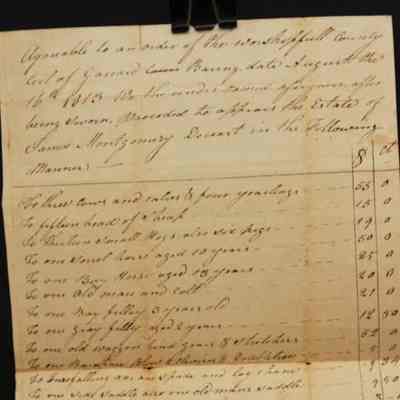 Agreable to an order of the worshipfull County
Cort of Garrard Cown Baring date August the
16th 1813 We the under named aforegone after
being Sworn Proceded to appraise the Estate of
James Montgomery Deceast in the Following
Manner:—
$ Ct
To three cows and calves & four yearlings 55 0
To fifteen head of Sheep 15 0
To Thirteen Small Hogs also six pigs 19 0
To one Sorrel horse aged 10 years 50 0
To one Bay Horse aged 18 years 25 0
To one Old mare and colt 20 0
To one Bay filley 3 year old 21 0
To one Gray filley aged 2 years 12 50
To one old waggon hind gears & Stretchers 52 0
To one 5 0
To one falling axe one spade and log chain
To one side saddle also one old mans saddle